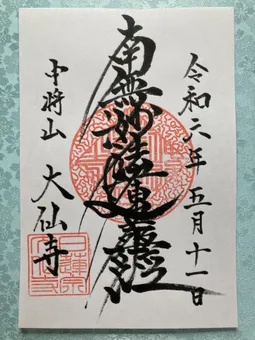 令和六年 五月十一日
南無妙法蓮華経
中将山
大仙寺
日蓮宗
大仙寺